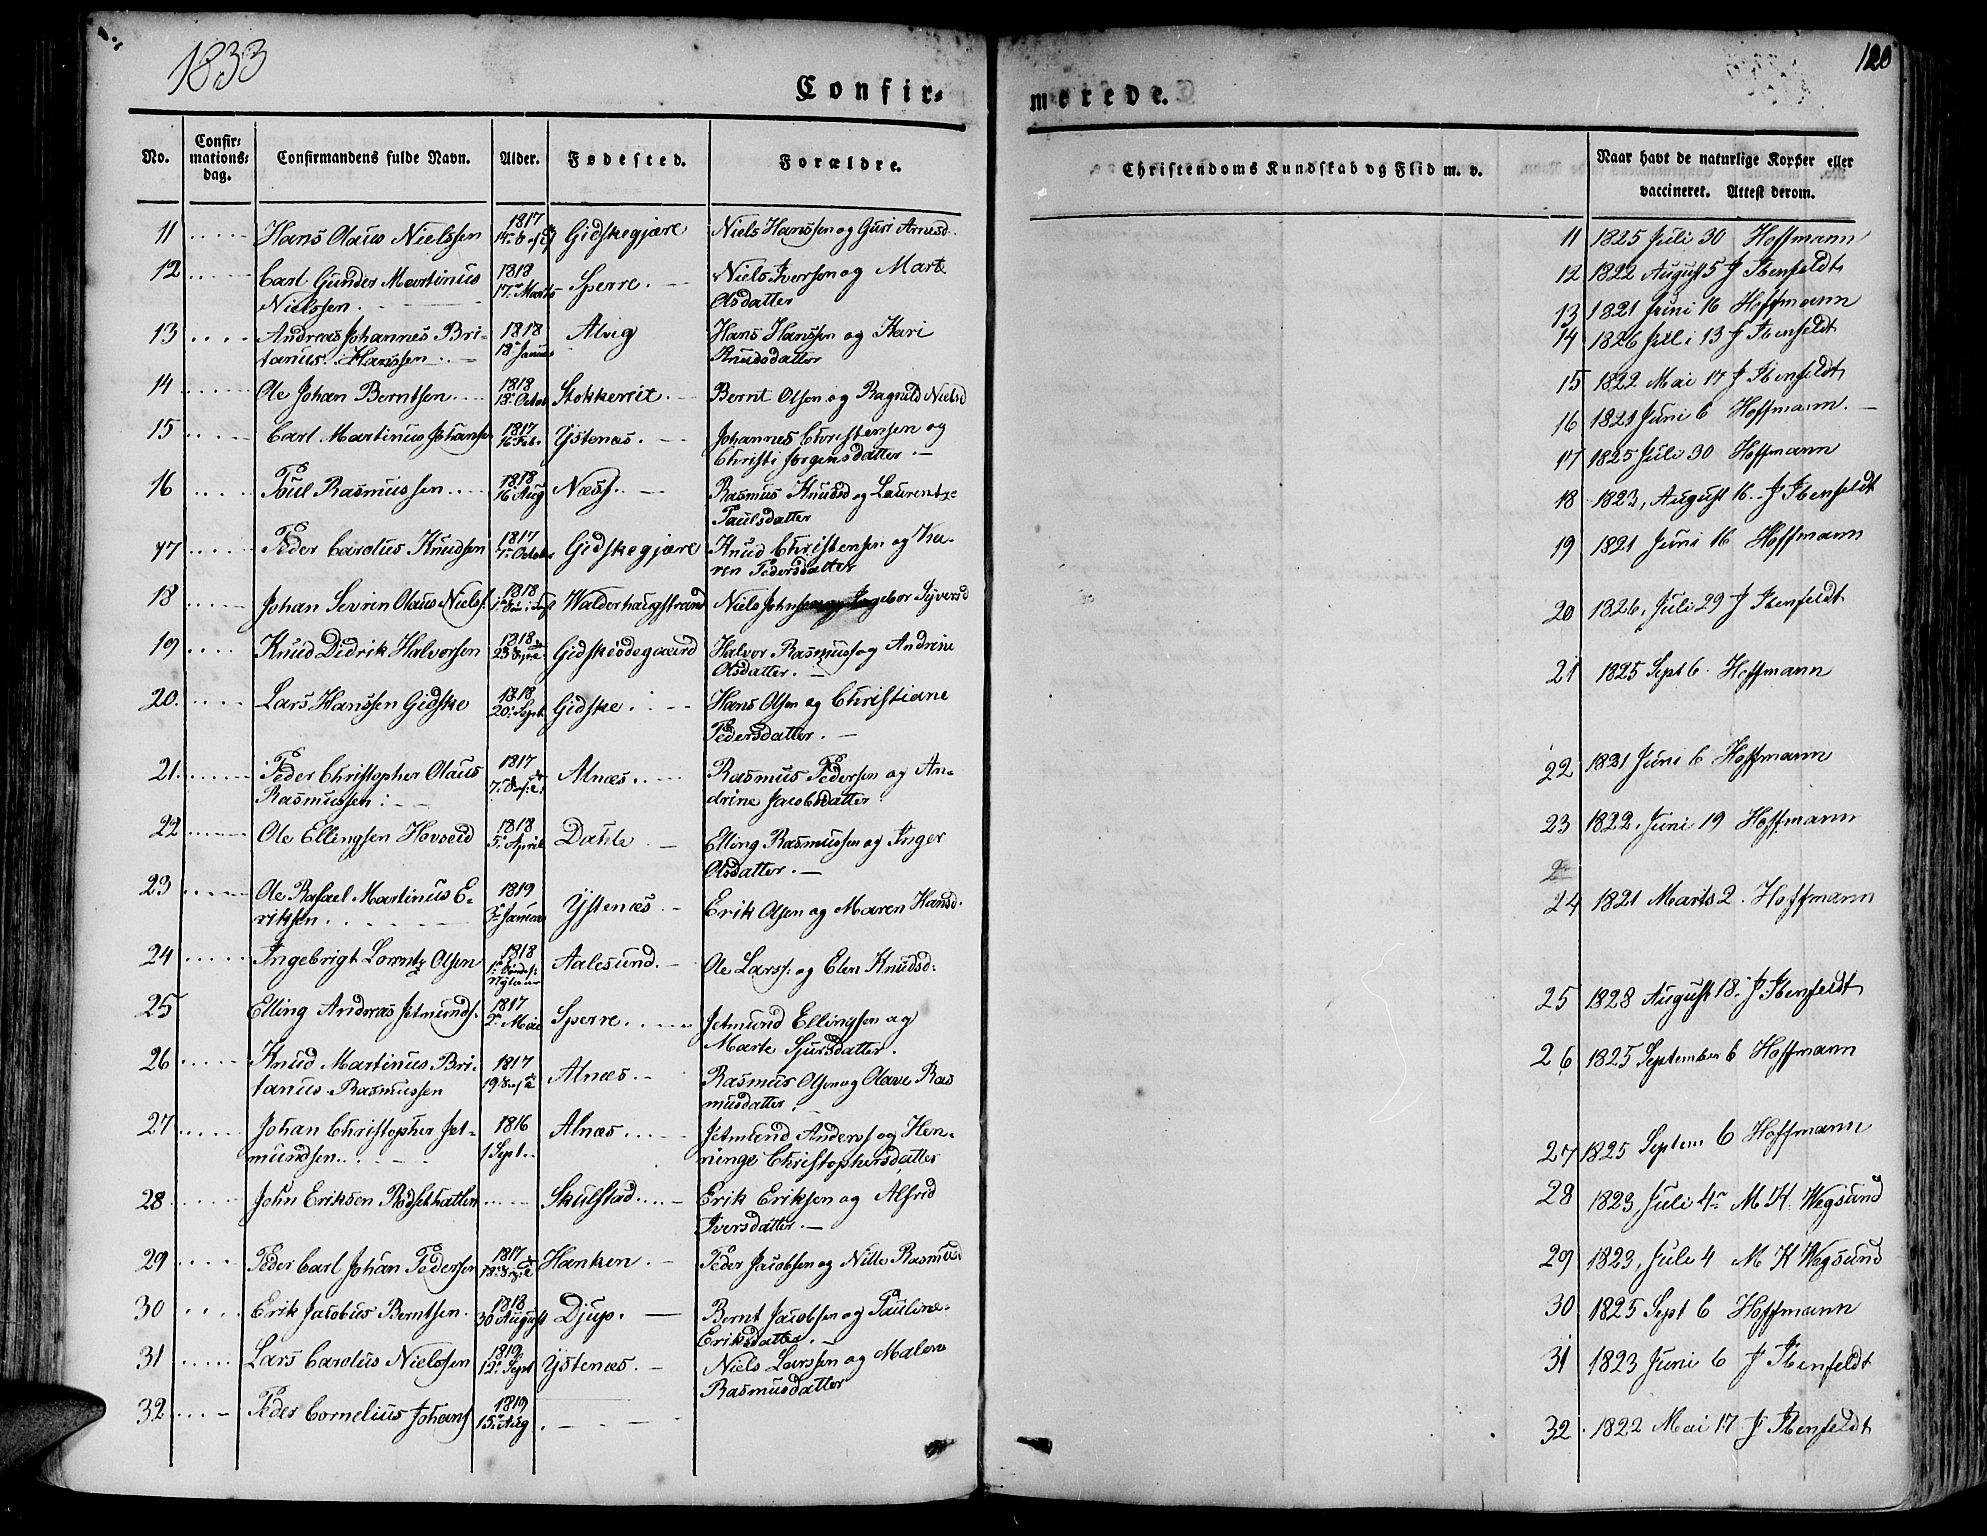 1833
120
Confir-
merede.
No.
Confir-
mations-
dag.
Confirmandens fulde Navn.
Alder.
Fødested.
Forældre.
Christendoms Kundskab og Flid m. v.
Naar havt de naturlige Kopper eller
vaccineret. Attest derom.
11 Hans Olaus Nielssen 1817 Gidskegjære Niels Hanssen og Guri Arnesd.
12 Carl Gunder Martinus 1818 Sperre. Niels Iversen og Marte
Nielssen. 17de Marts Olsdatter
13 Andreas Johannes Bri- 1818 Alvig Hans Hanssen og Kari
tanus Hanssen 18de Januar Knudsdatter
14 Ole Johan Berntsen 1818 Stokkereit Bernt Olsen og Ragnild Nielsd
18de Octob
15 Carl Martinus Johansen 1817 Ystenæs. Johannes Christensen og
16de Feb. Christi Jørgensdatter.
16 Poul Rasmussen 1818 Næss. Rasmus Knudsd og Laurentze
16 Aug Paulsdatter
17 Peder Carolus Knudsen 1817 Gidskegjære Knud Christensen og Ka-
7de Octob ren Pedersdatter
18 Johan Severin Olaus Niels. 1818 Walderhaugstrand Niels Johnsen og Ingebor Syversd
19 Knud Didrik Halvorsen 1818 Gidskeödegaard Halvor Rasmuss og Andrine
Olsdatter.
20. Lars Hanssen Gidske 1818 Gidske. Hans Olsen og Christiane
20de Sept Pedersdatter.
21. Peder Christopher Olaus 1817 Alnæs. Rasmus Pedersen og An-
Rasmussen drine Jacobsdatter
22 Ole Ellingsen Hovseid 1818 Dahle Elling Rasmussen og Inger
5te April Olsdatter.
23 Ole Rafael Martinus E- 1819 Ystenæs Erik Olsen og Maren Hansd.
riksen 3de Januar
24 Ingebrigt Lorentz Olsen 1818 Aalesund. Ole Larss. og Elen Knudsd.
25 Elling Andreas Jetmunds. 1817 Sperre. Jetmund Ellingsen og
2de Mai Marte Sjursdatter.
26 Knud Martinus Bri- 1817 Alnæs. Rasmus Olsen og Olave Ras
tanus Rasmussen musdatter.
27 Johan Christopher Jet- 1816 Alnæs. Jetmund Anders og Hen-
mundsen. 1 Sept. ninge Christophersdatter
28 John Eriksen Rødsethatlen Skulstad Erik Eriksen og Alfrid
Iversdatter.
29 Peder Carl Johan Pedersen 1817 Hanken Peder Jacobsen og Nille Rasmusd
30 Erik Jacobus Berntsen. 1818 Djup. Bernt Jacobsen og Pauline
30 August Eriksdatter.
31 Lars Carolus Nielssen 1819 Ystenæs Niels Larssen og Malene
12te Sept Rasmusdatter
32 Peder Cornelius Johans 1819
15de Aug
11 1825 Juli 30 Hoffmann
12 1822 August 5 J Ibenfeldt
13 1821 Juni 16 Hoffmann
14 1826 Juli 13 J Ibenfeldt
15 1822 Mai 17 J Ibenfeldt
16 1821 Juni 6 Hoffmann.
17 1825 Juli 30 Hoffmann
18 1823, August 16. J Ibenfeldt
19 1821 Juni 16 Hoffmann
20 1826, Juli 29 J Ibenfeldt
21 1825 Sept 6. Hoffmann
22 1821 Juni 6 Hoffmann
23 1822, Juni 19 Hoffmann
24 1821 Marts 2. Hoffmann
25 1828 August 18. J Ibenfeldt
26 1825 September 6 Hoffmann
27 1825 Septem 6 Hoffmann
28 1823, Juli 4 M K. Wegsund
29 1823, Juli 4 M K Wegsund
30 1825 Sept 6 Hoffmann
31 1823 Juni 6 J Ibenfeldt
32. 1822 Mai 17 J Ibenfeldt